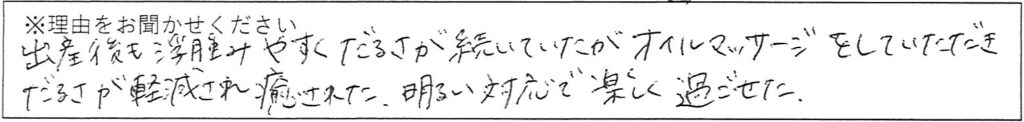 ※理由をお聞かせください
出産後も浮腫みやすくだるさが続いていたがオイルマッサージをしていただき
だるさが軽減され癒された。明るい対応で楽しく過ごせた。